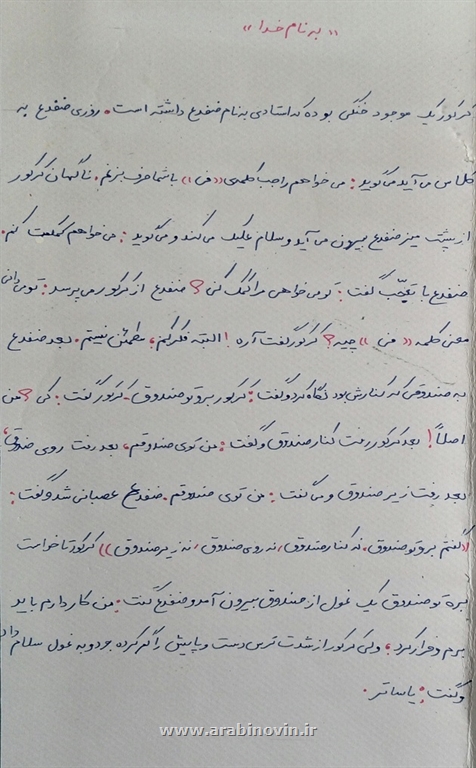 « به نام خدا »
کرکور یک موجود خنگی بوده که استادی به نام ضفدع داشته است. روزی ضفدع به
کلاس می آید می گوید: می خواهم راجب کلمه ی «فی» با شما حرف بزنم. ناگهان کرکور
از پشت میز ضفدع بیرون می آید و سلام علیک می کند و می گوید: می خواهم کمکت کنم.
ضفدع با تعجّب گفت: تو می خواهی مرا کمک کنی؟ ضفدع از کرکور می پرسد: تو می دانی
معنی کلمه «فی» چیه؟ کرکور گفت آره! البته فکر کنم، مطمئن نیستم. بعد ضفدع
به صندوقی که کنارش بود نگاه کرد و گفت: کرکور برو تو صندوق. کرکور گفت: کی؟ من
اصلاً! بعد کرکور رفت کنار صندوق و گفت: من توی صندوقم، بعد رفت روی صندوق،
بعد رفت زیر صندوق و می گفت: من توی صندوقم. ضفدع عصبانی شد و گفت:
«گفتم برو تو صندوق، نه کنار صندوق، نه روی صندوق، نه زیر صندوق» کرکور تا خواست
بره تو صندوق یک غول از صندوق بیرون آمد و ضفدع گفت: من کار دارم باید
برم و فرار کرد، ولی کرکور از شدت ترس دست و پایش را گم کرده بود و به غول سلام داد
و گفت: یا ساتر.
www.arabinovin.ir